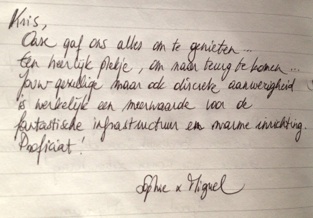 Kris,
Onze gaf ons alles om te genieten...
Een heerlijk plekje, om naar terug te komen...
Jouw gezellige maar ook discrete aanwezigheid
is werkelijk een meerwaarde voor de
fantastische infrastructuur en warme inrichting.
Proficiat!
Sophie & Miguel